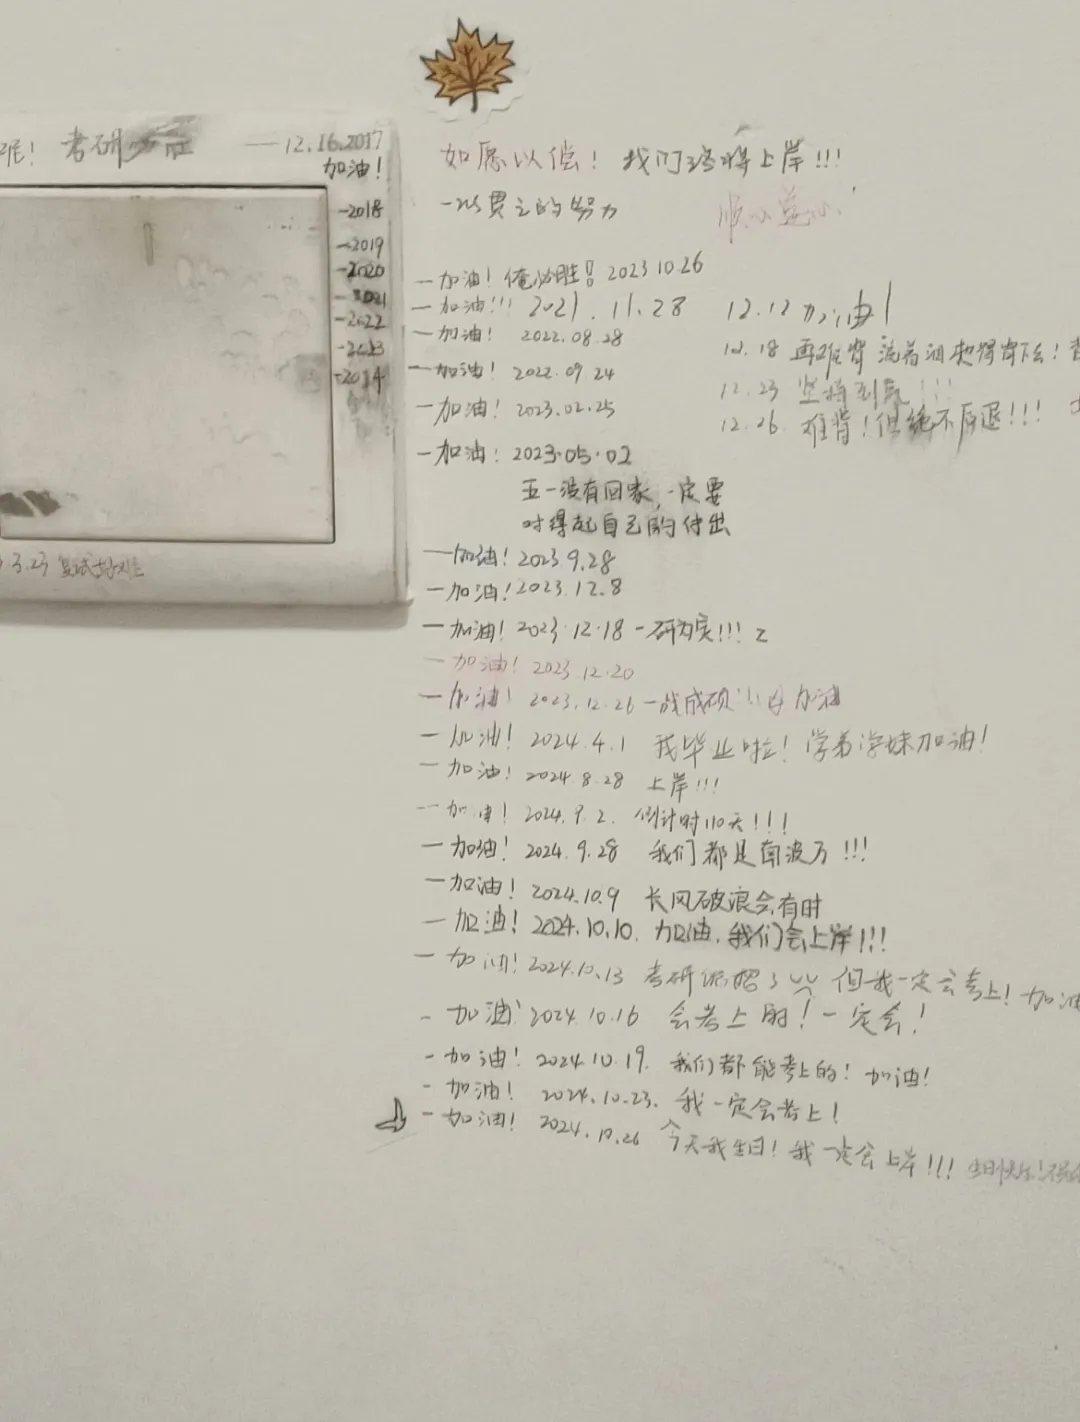 考研必胜 ——12.16.2017
加油！
-2018
-2019
-2020
-2021
-2022
-2023
-2024
3.23 复试好难
如愿以偿！ 我们终将上岸!!!
一以贯之的努力
顺心遂心
—加油！俺必胜！ 2023 10 26
—加油!!! 2021.11.28
—加油！ 2022.08.28
—加油！ 2022.09 24
—加油！ 2023.02.25
—加油！ 2023.05.02
五一没有回家，一定要
对得起自己的付出
—加油！2023.9.28
—加油！2023.12.8
—加油！2023.12.18 一研为定!!!
—加油！ 2023.12.20
—加油！ 2023.12.26 一战成硕!!! 加油
—加油！ 2024.4.1 我毕业啦！学弟学妹加油！
—加油！ 2024.8.28 上岸!!!
—加油！ 2024.9.2. 倒计时110天!!!
—加油！ 2024.9.28 我们都是南波万!!!
—加油！ 2024.10.9 长风破浪会有时
—加油！2024.10.10. 加油，我们会上岸!!!
—加油！2024.10.13 考研 但我一定会考上！加油
-加油！2024.10.16 会考上的！一定会！
-加油！2024.10.19. 我们都能考上的！加油！
-加油！ 2024.10.23. 我一定会考上！
-加油！ 2024.10.26 今天我生日！我一定会上岸!!! 生日快乐！
12.12 加油！
12.18 再难背 流着泪也得背下去！
12.23 坚持到底!!!
12.26. 难背！但绝不后退!!!